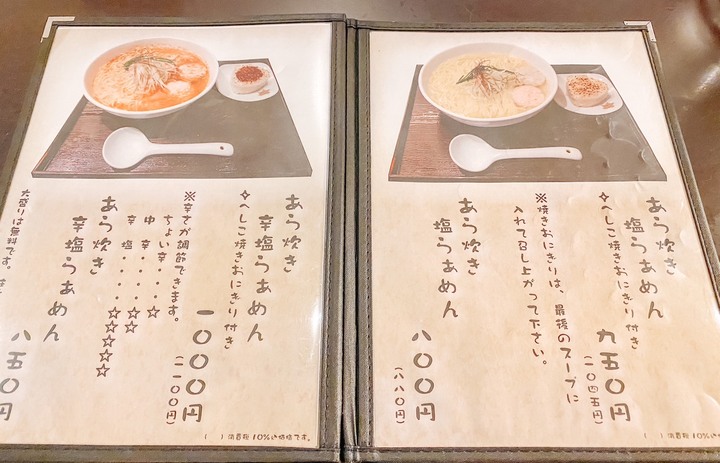 あら炊き
塩らぁめん
✧へしこ焼きおにぎり付き
九五〇円
(一〇四五円)
※焼きおにぎりは、最後のスープに
入れて召し上がって下さい。
あら炊き
塩らぁめん
八〇〇円
(八八〇円)
( )消費税10%込価格です。
あら炊き
辛塩らぁめん
✧へしこ焼きおにぎり付き
一〇〇〇円
(一一〇〇円)
※辛さが調節できます。
ちょい辛・・・☆
中辛・・・・☆☆
辛塩・・・・☆☆☆☆☆
あら炊き
辛塩らぁめん
八五〇円
大盛りは無料です。
( )消費税10%込価格です。